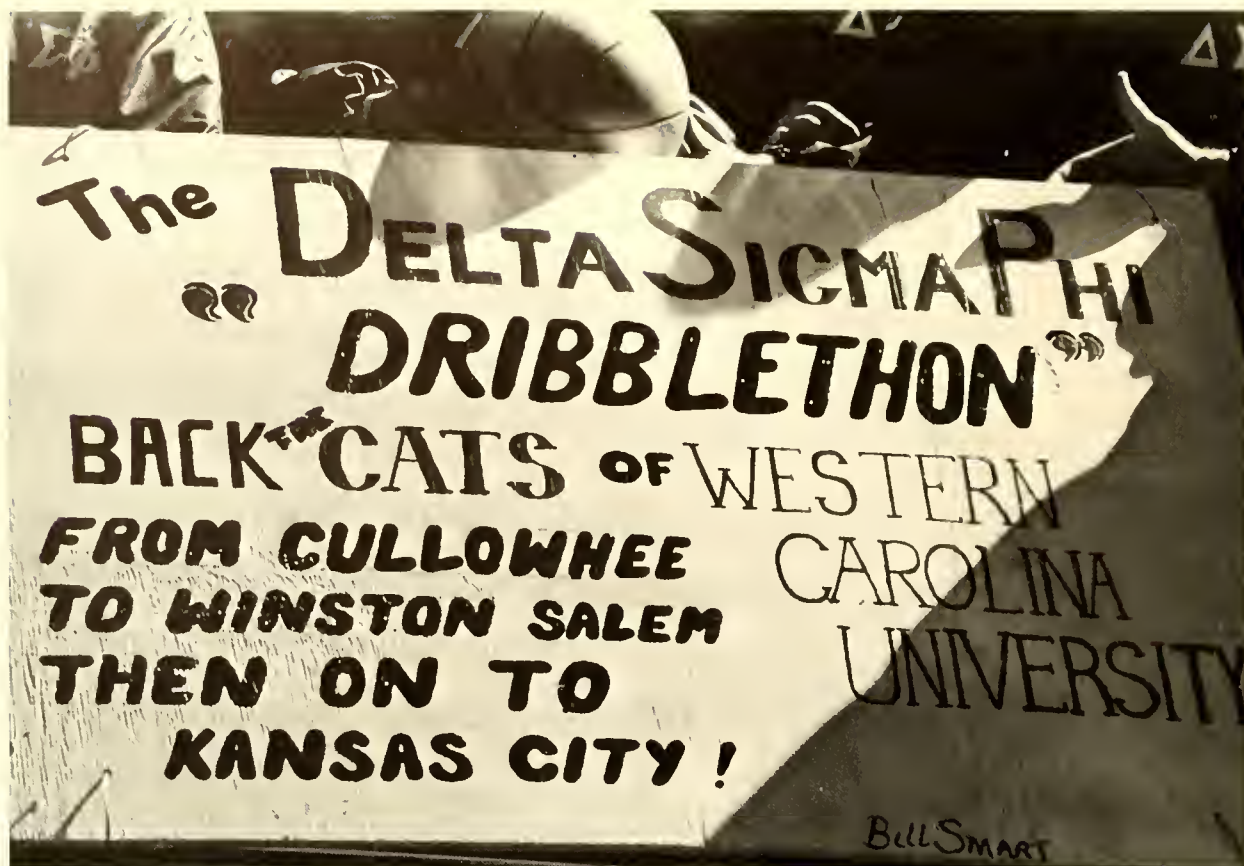 The DELTA SIGMA PHI
"DRIBBLETHON"
BACK THE CATS OF WESTERN
CAROLINA
UNIVERSITY
FROM CULLOWHEE
TO WINSTON SALEM
THEN ON TO
KANSAS CITY!
Bill SMART